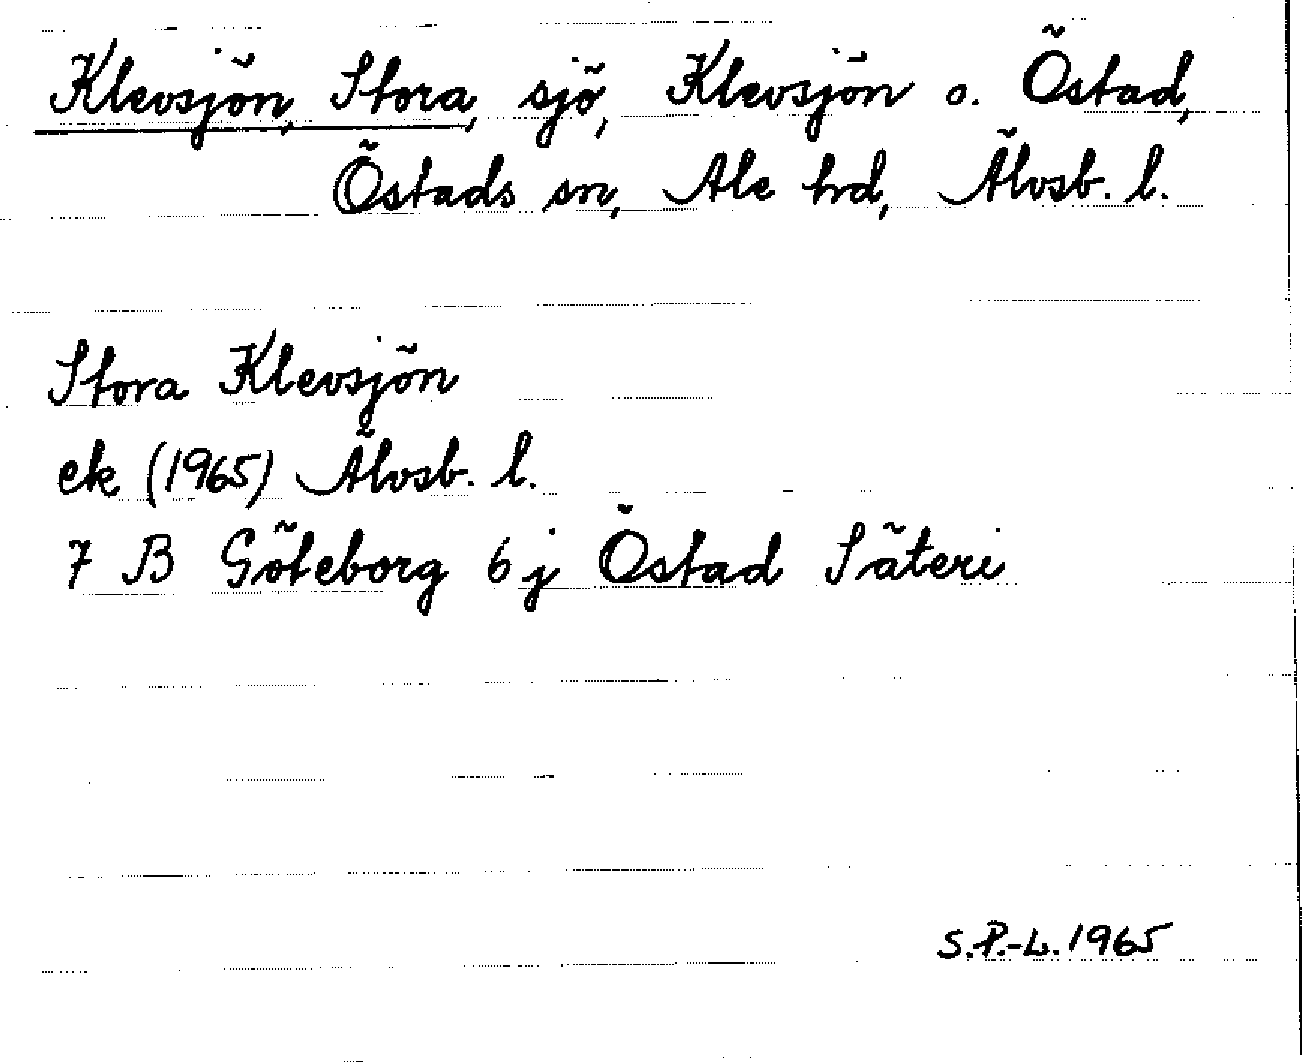 Klevsjön, Stora, sjö, Klevsjön o. Östad,
Östads sn, Ale hrd, Älvsb. l.
Stora Klevsjön
ek (1965) Älvsb. l.
7 B Göteborg 6 j Östad Säteri
S.P.-L. 1965